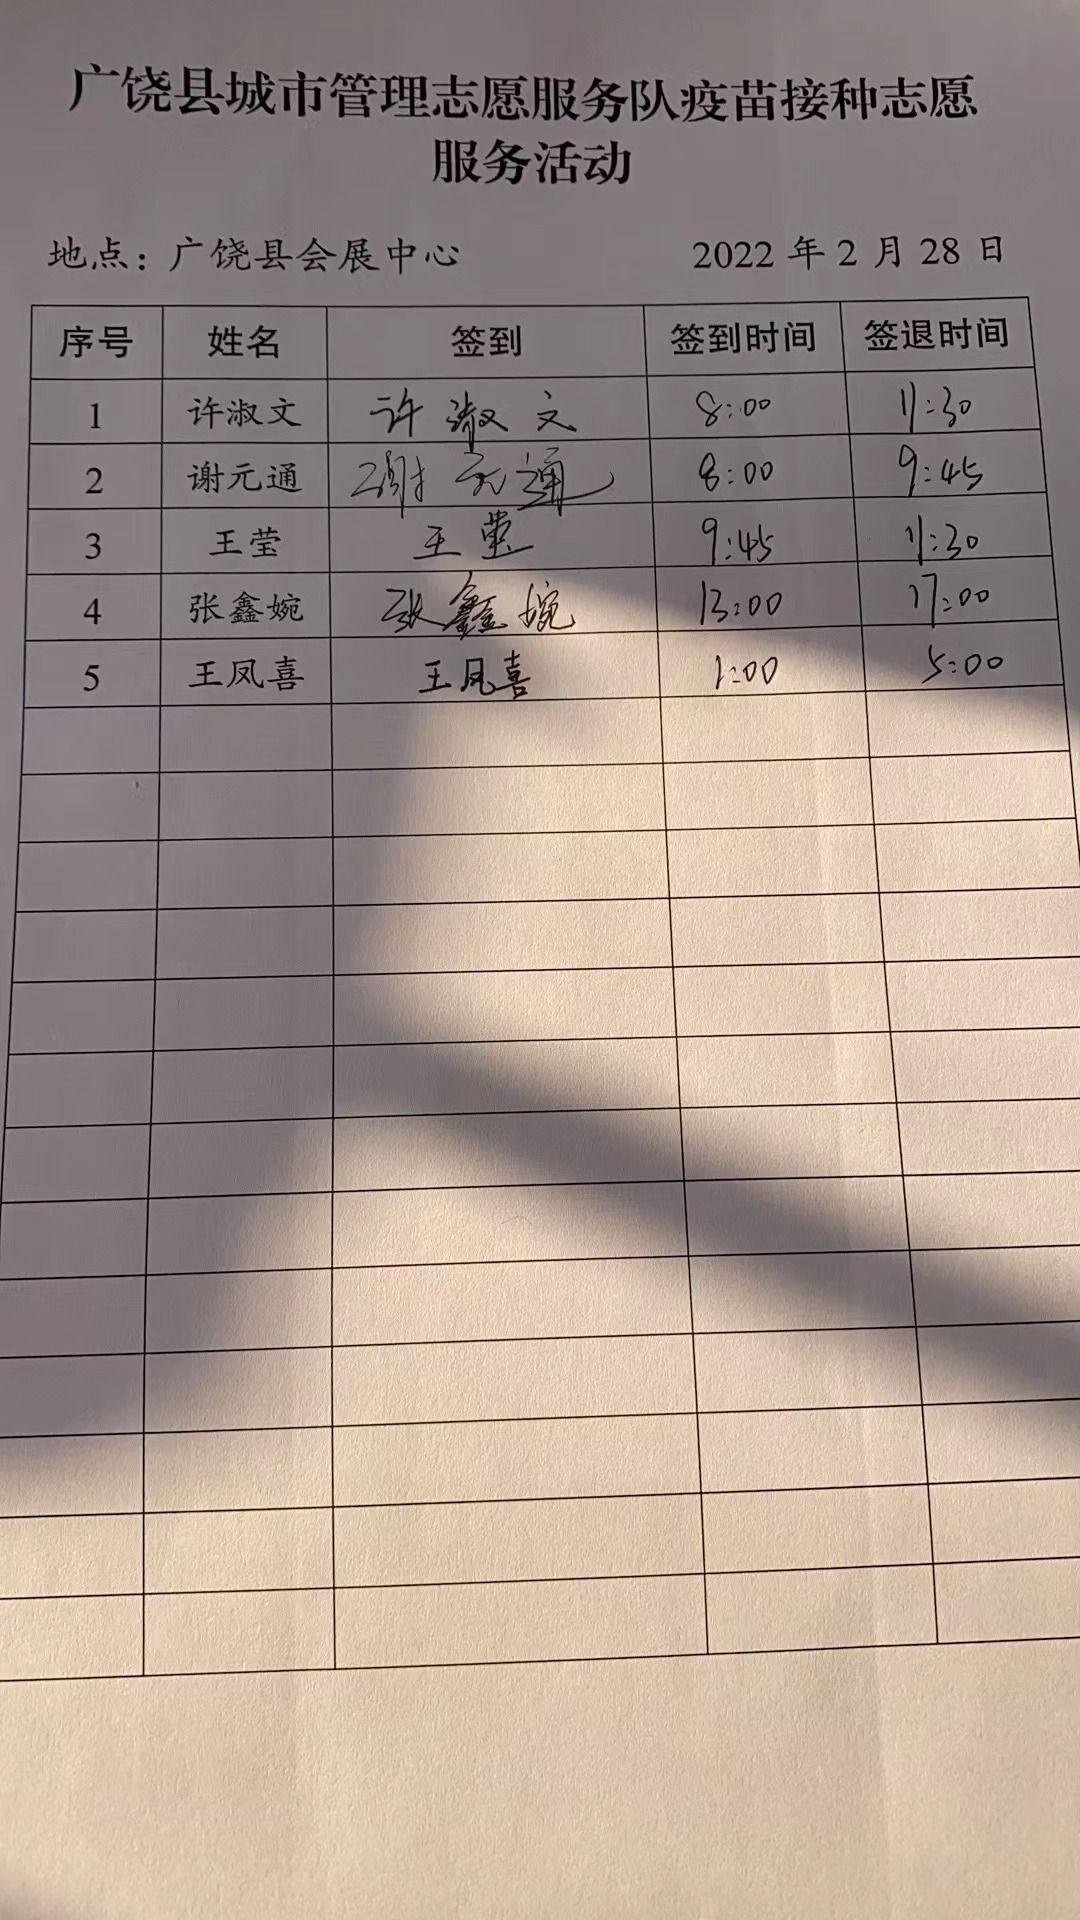 广饶县城市管理志愿服务队疫苗接种志愿
服务活动
地点：广饶县会展中心 2022 年 2 月 28 日
序号 姓名 签到 签到时间 签退时间
1 许淑文 许淑文 8:00 11:30
2 谢元通 谢元通 8:00 9:45
3 王莹 王莹 9:45 11:30
4 张鑫婉 张鑫婉 13:00 17:00
5 王凤喜 王凤喜 1:00 5:00